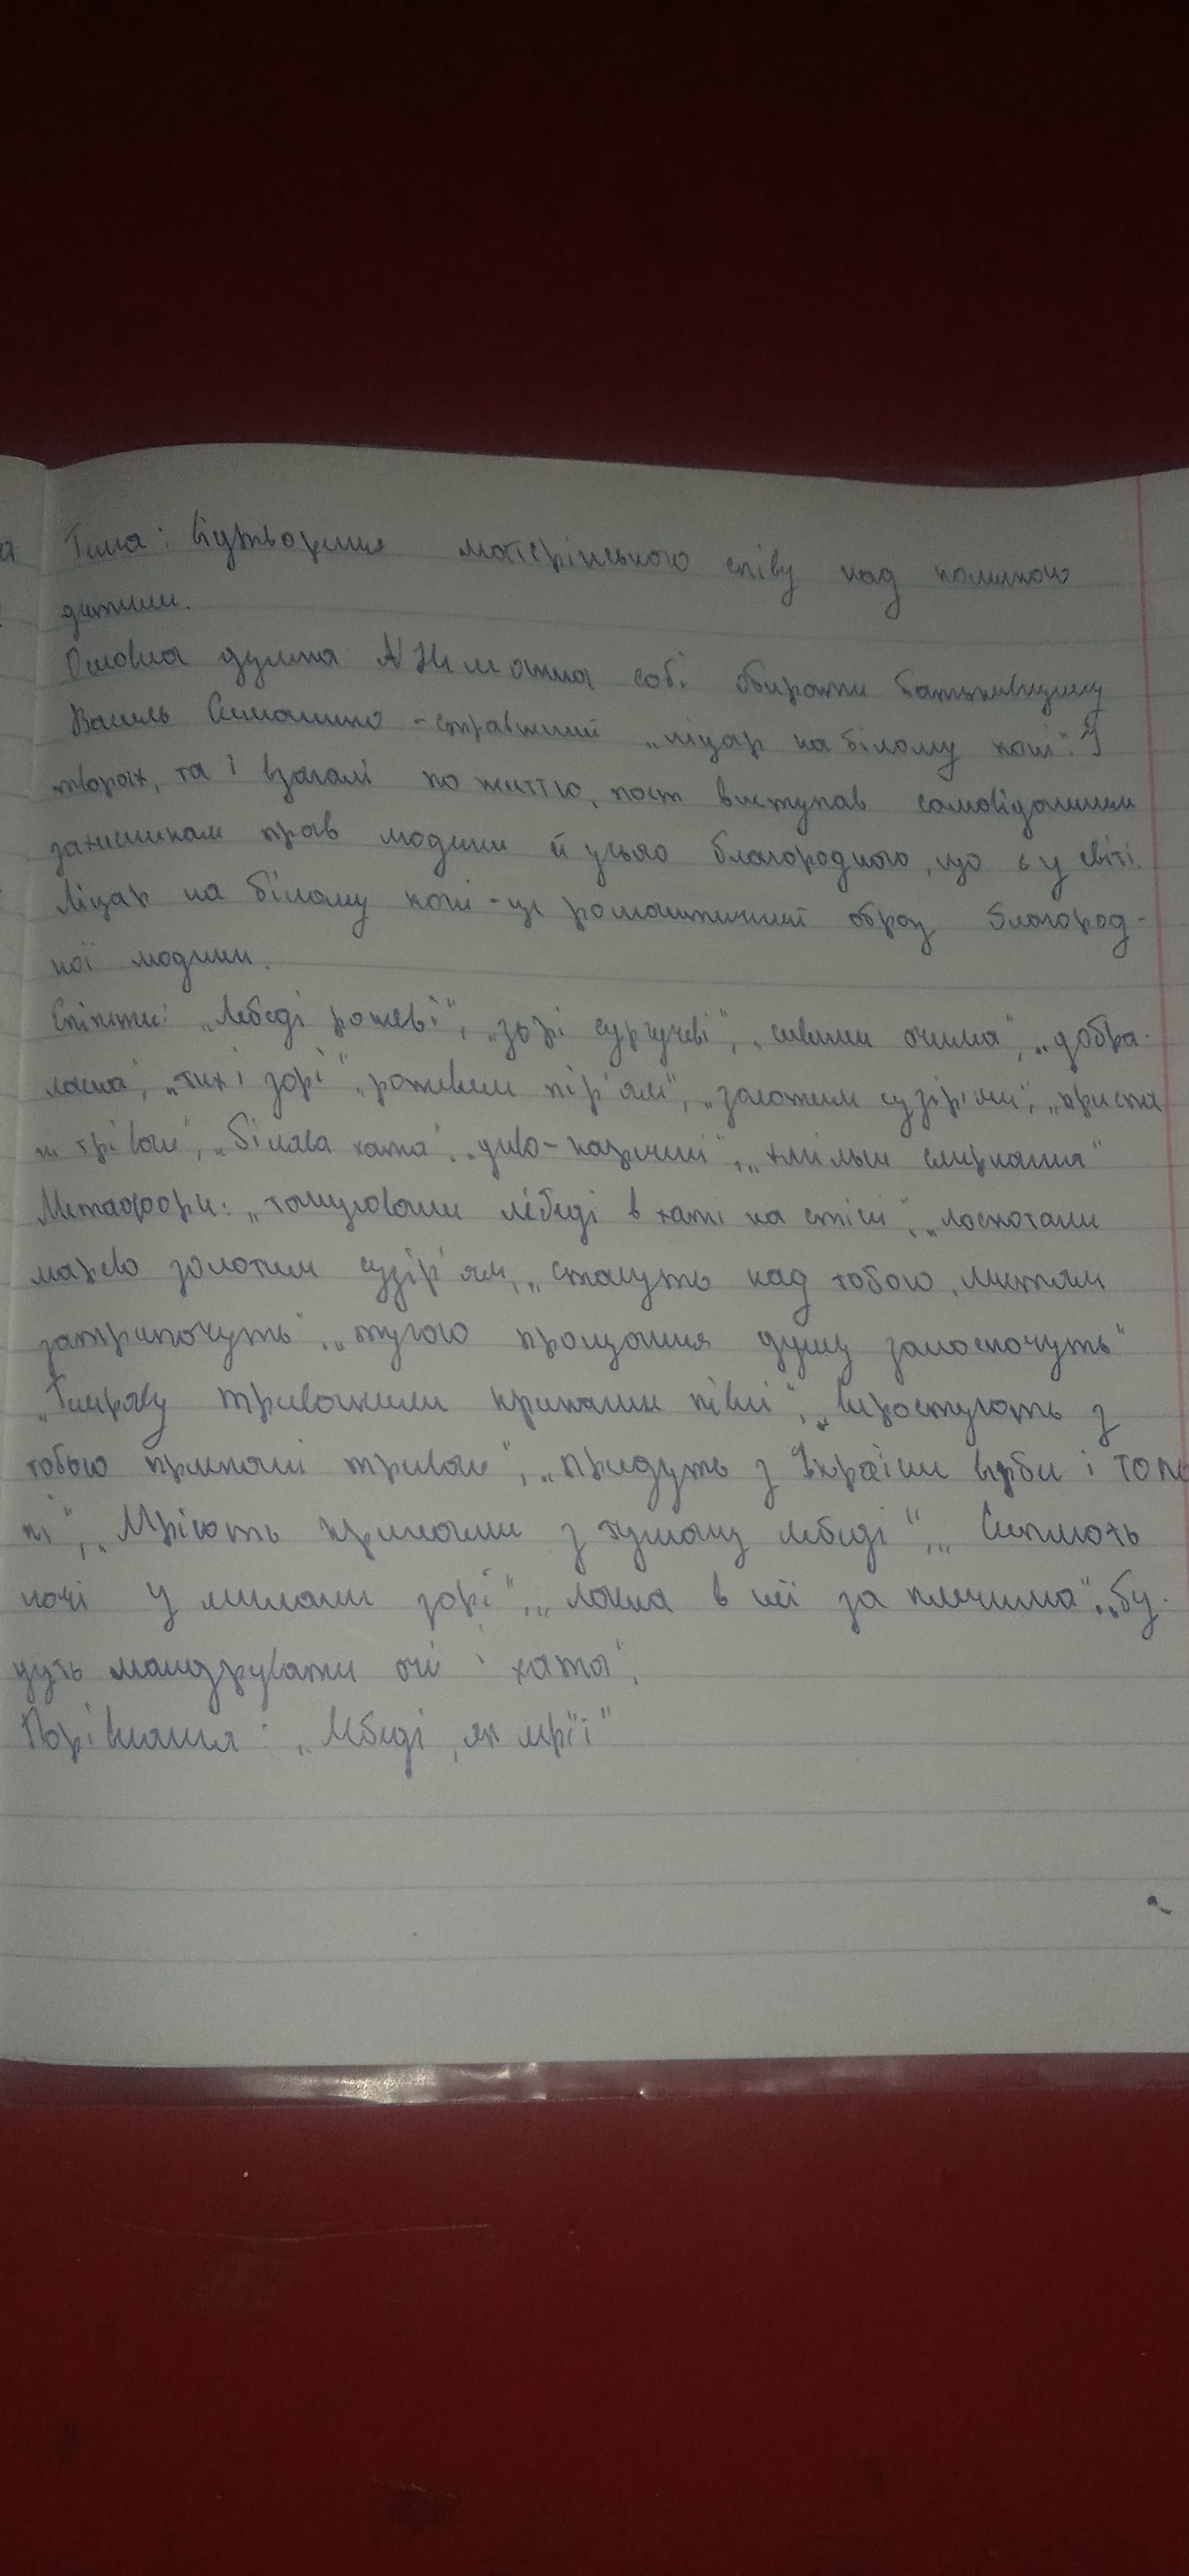 Тема: відтворення материнського співу над колискою
дитини.
Основна думка Не можна собі обирати батьківщину
Василь Симоненко - справжній „ліцар на білому коні". У
творах, та і взагалі по життю, поет виступав самовідданим
захисником прав людини й усього благородного, що є у світі.
Ліцар на білому коні - це романтичний образ благород-
ної людини.
Епітети: „Лебеді рожеві", „зорі сургучеві", „сивими очима", „добра
ласка", „тихі зорі" „рожевим пір'ям", „золотим сузір'ям",
„білява хата", „диво-казіний", „хмільні смеркання"
Метафори: „танцювали лебеді в хаті на стіні", „лоскотали
марево золотим сузір'ям", „стануть над тобою, листям
затріпочуть", „тугою прощання душу залоскочуть"
„Темряву тривожили криками півні", „Виростуть з
тобою приспані тривоги", „придуть з України верби і топо
лі", „Мріють крилами з туману лебеді", „Сиплють
ночі у лимани зорі", „ласка в неї за плечима", „бу-
дуть мандрувати очі і хата".
Порівняння: „Лебеді, як мрії"